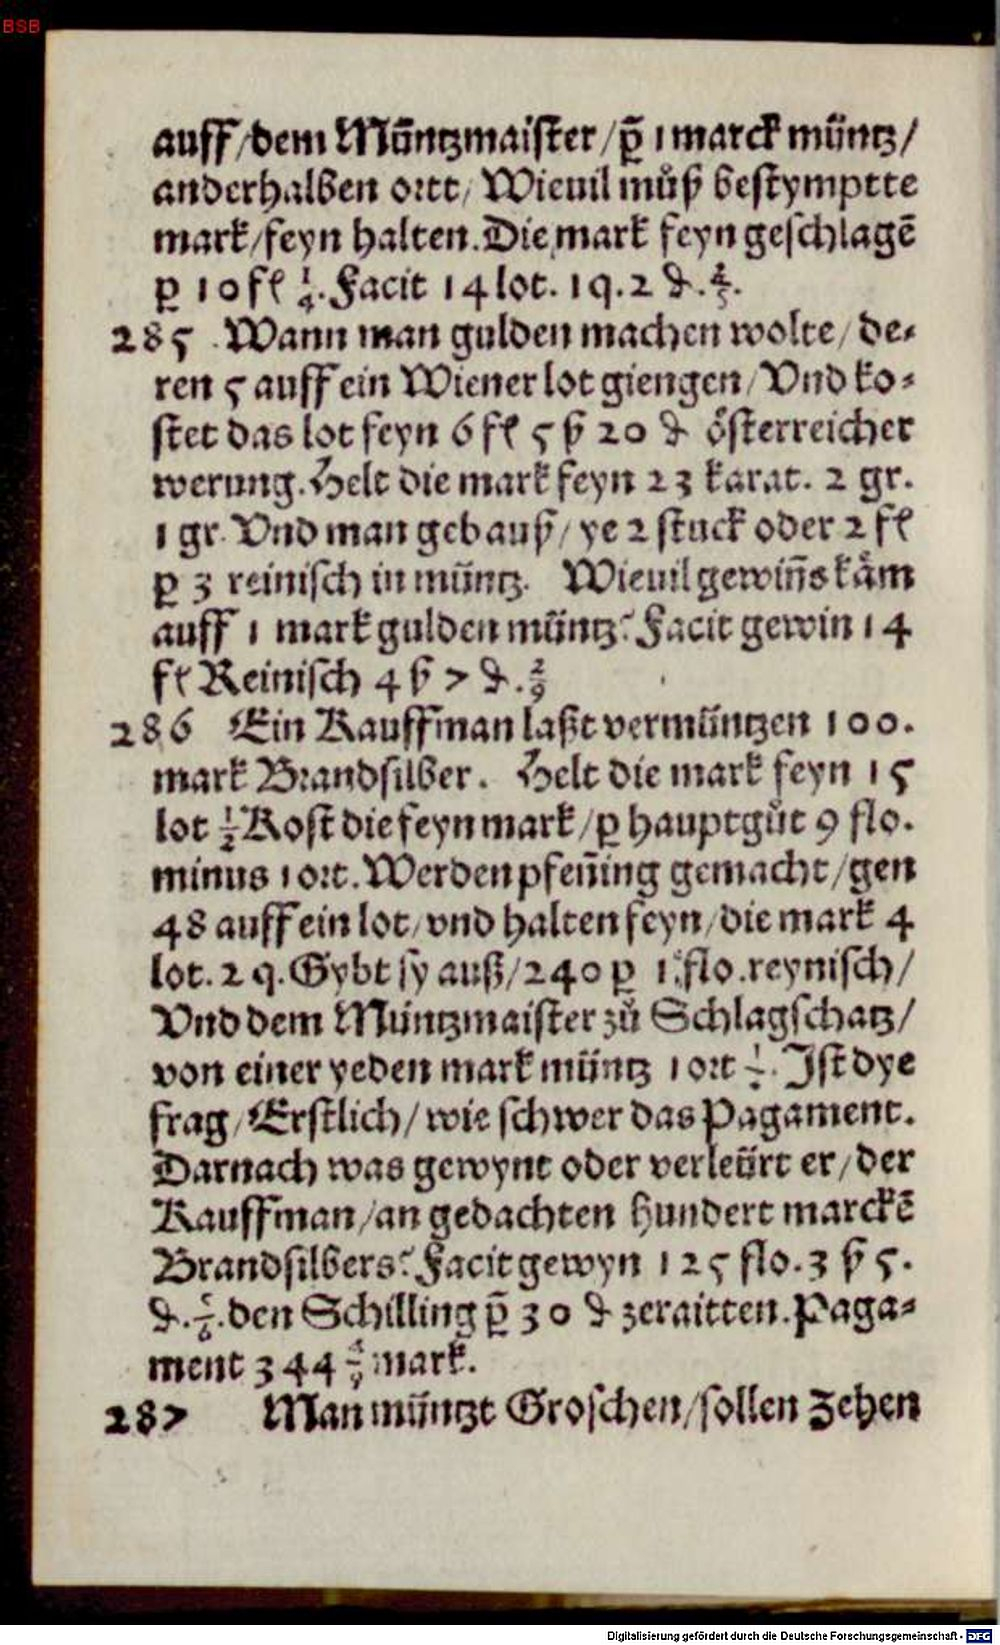 BSB
auff/dem Mūntzmaister/p̄ 1 marck müntz/
anderhalben ortt/ Wieuil můß bestymptte
mark/feyn halten. Die mark feyn geschlagē
p 10 fl ¼. Facit 14 lot. 1 q. 2 ₰. ⅘.
285 Wann man gulden machen wolte/ de⸗
ren 5 auff ein Wiener lot giengen/ Vnd ko⸗
stet das lot feyn 6 fl 5 ß 20 ₰ österreicher
werung. Helt die mark feyn 23 karat. 2 gr.
1 gr. Vnd man geb auß/ ye 2 stuck oder 2 fl
p 3 reinisch in müntz. Wieuil gewiñs kåm
auff 1 mark gulden müntz? Facit gewin 14
fl Reinisch 4 ß 7 ₰. 2/9
286 Ein Kauffman laßt vermüntzen 100.
mark Brandsilber. Helt die mark feyn 15
lot ½ Kost die feyn mark/ p hauptgůt 9 flo.
minus 1 ort. Werden pfeñing gemacht/ gen
48 auff ein lot/ vnd halten feyn/ die mark 4
lot. 2 q. Gybt sy auß/ 240 p 1 flo. reynisch/
Vnd dem Müntzmaister zů Schlagschatz/
von einer yeden mark müntz 1 ort ½. Ist dye
frag/ Erstlich/ wie schwer das Pagament.
Darnach was gewynt oder verleürt er/ der
Kauffman/ an gedachten hundert marckē
Brandsilbers? Facit gewyn 125 flo. 3 ß 5.
₰. ⅚. den Schilling p̄ 30 ₰ zeraitten. Paga⸗
ment 344 4/9 mark.
287 Man müntzt Groschen/ sollen zehen
Digitalisierung gefördert durch die Deutsche Forschungsgemeinschaft - DFG